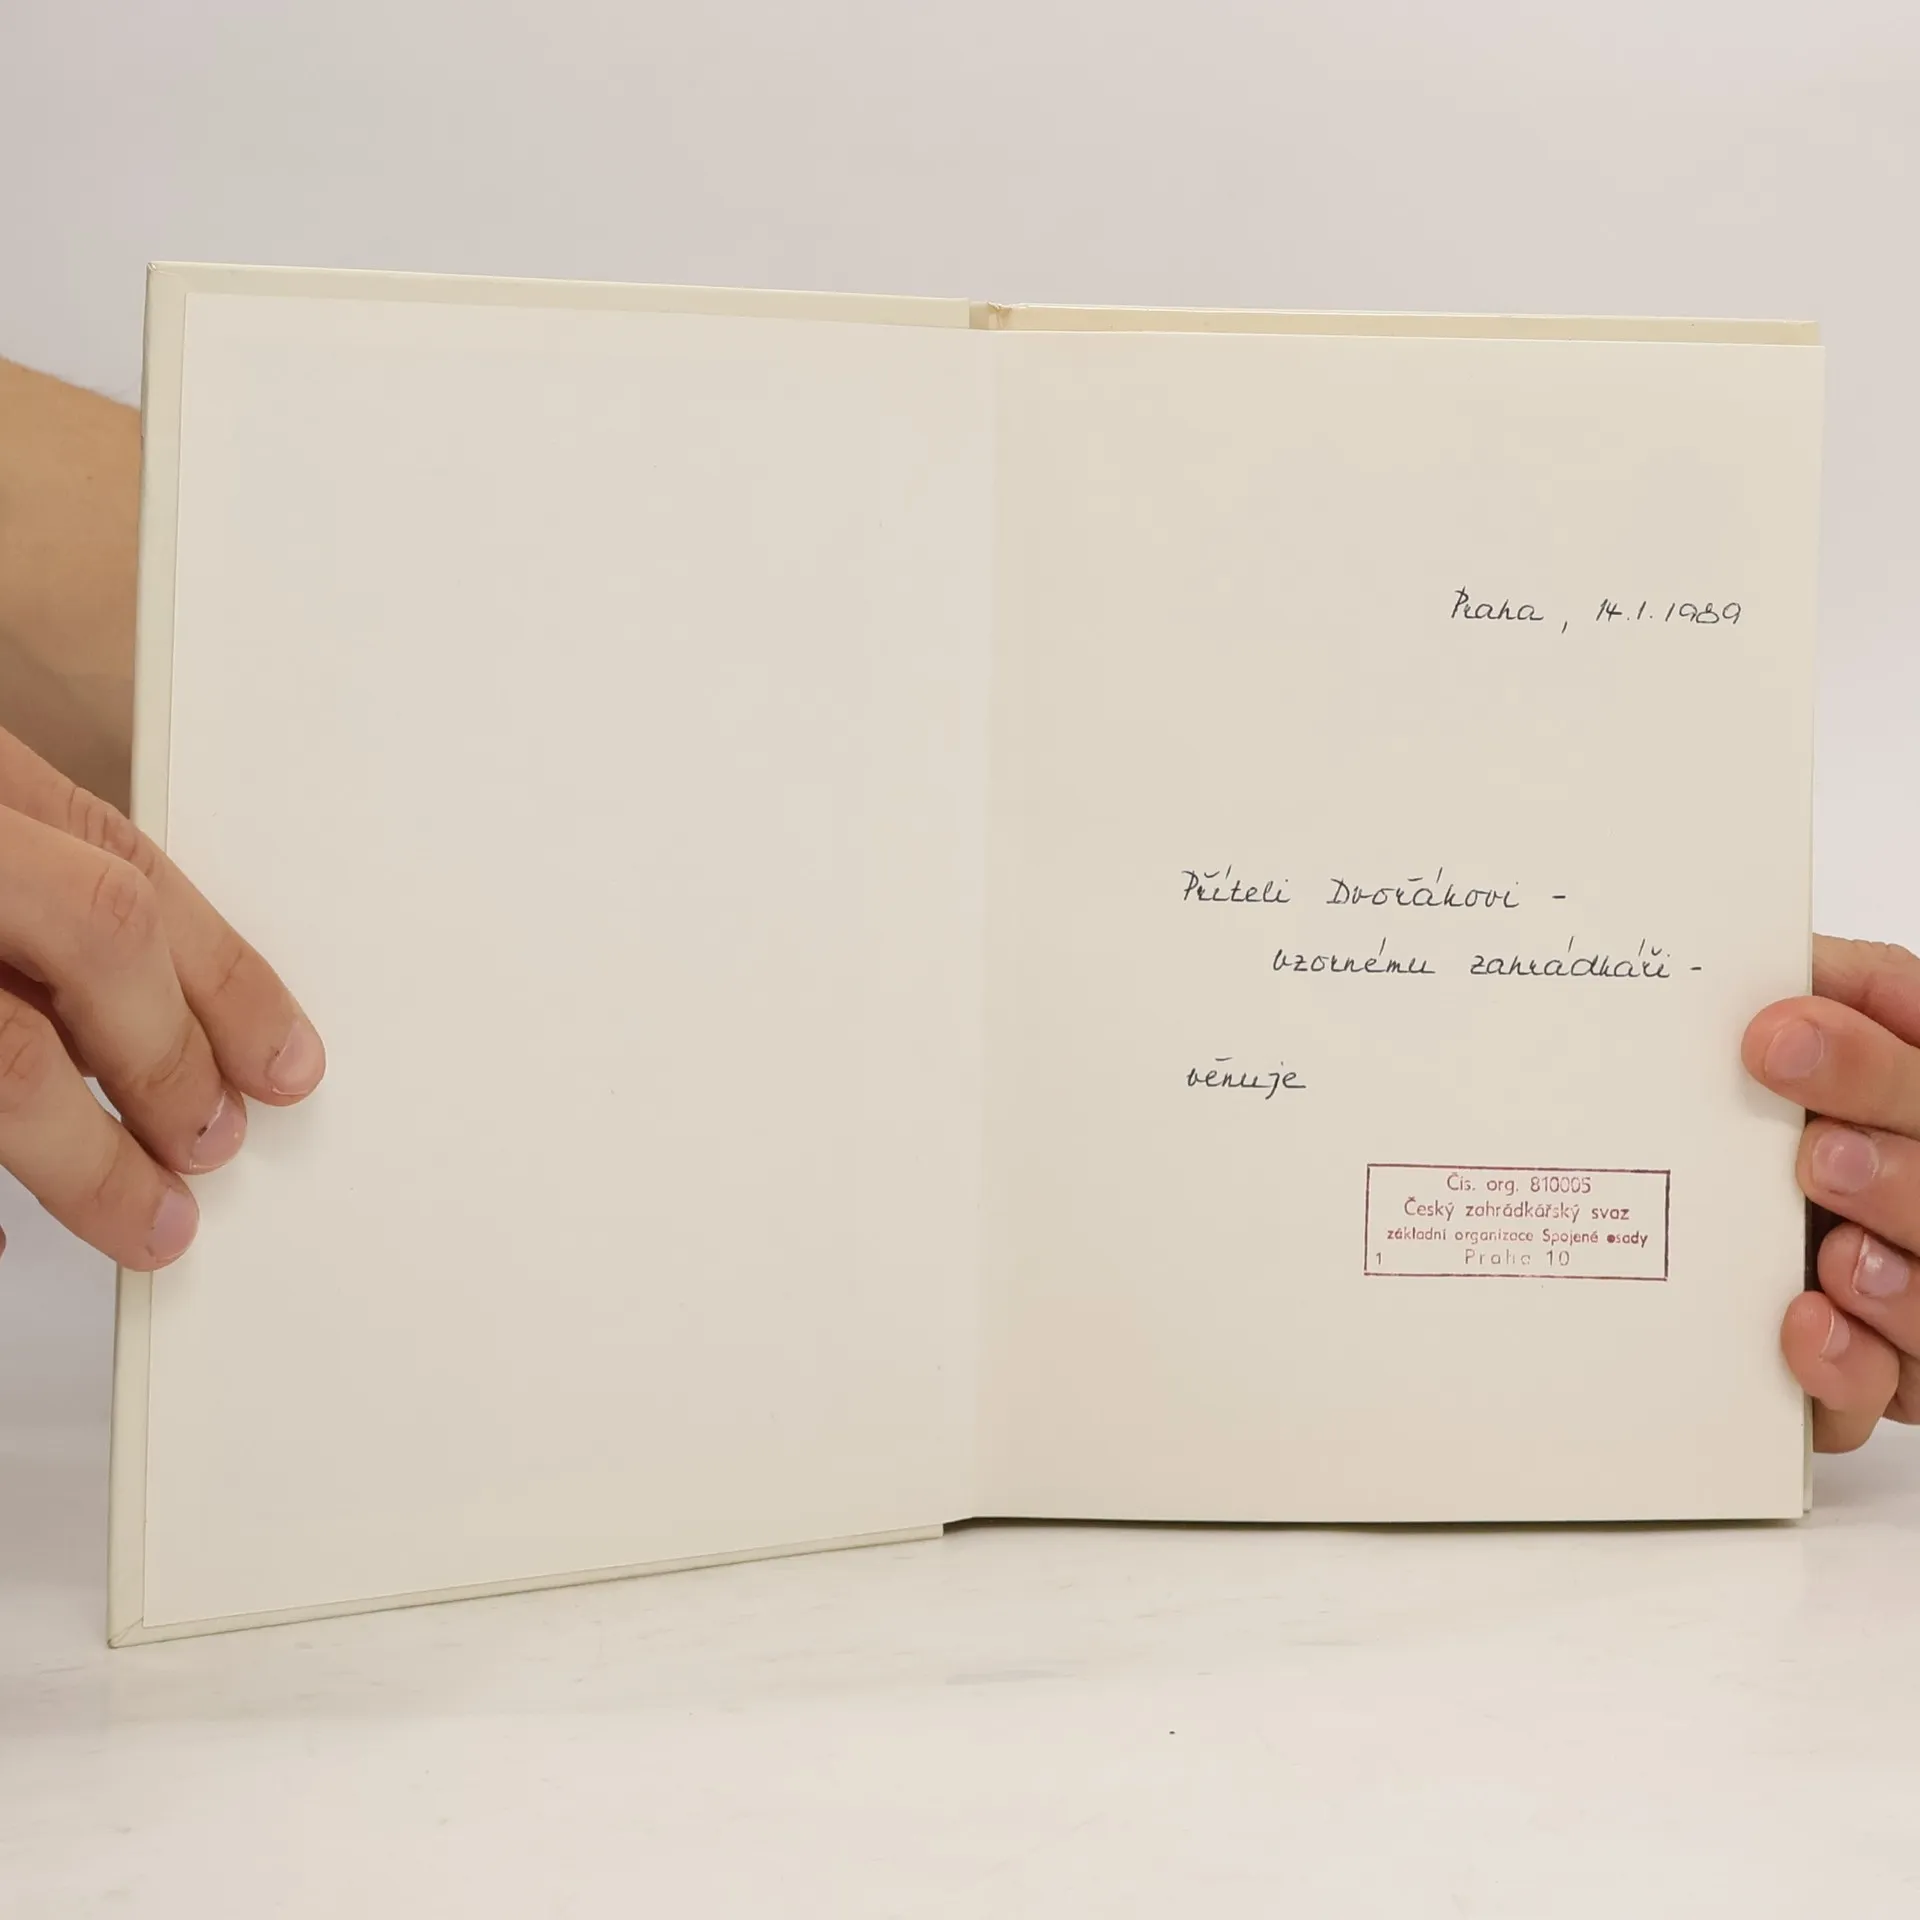 Praha, 14.1.1989
Příteli Dvořákovi -
vzornému zahrádkáři -
věnuje
Čís. org. 810005
Český zahrádkářský svaz
základní organizace Spojené osady
1 Praha 10